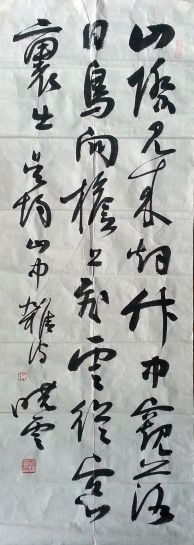 山際見来烟竹中窺落
日鳥向檐上飛雲從窗
裏出 吴均山中雜诗 曉雲